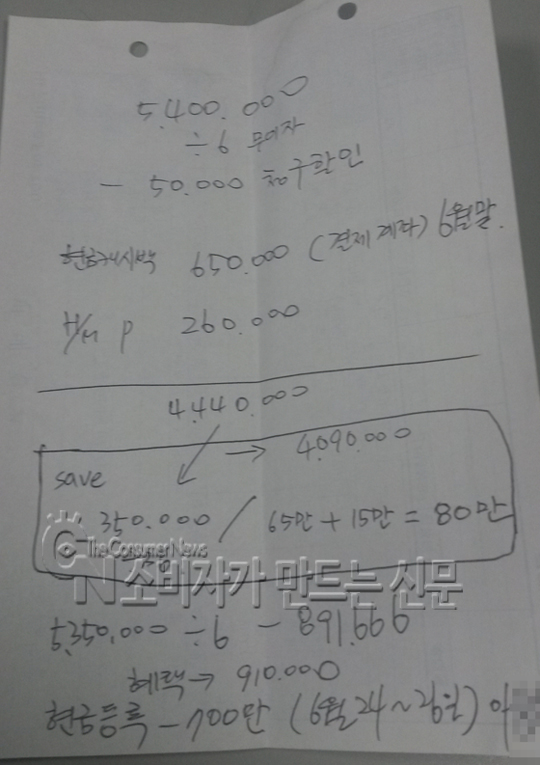 5,400.000
÷6 무이자
- 50.000 청구할인
현금캐시백 650.000 (결제계좌) 6월말.
H/M P 260.000
4.440.000
→ 4.090.000
save
350.000 / 65만 + 15만 = 80만
The Consumer News
소비자가 만드는 신문
5,350,000 ÷6 - 891.666
혜택→ 910.000
현금등록 - 700만 (6월24~26일)